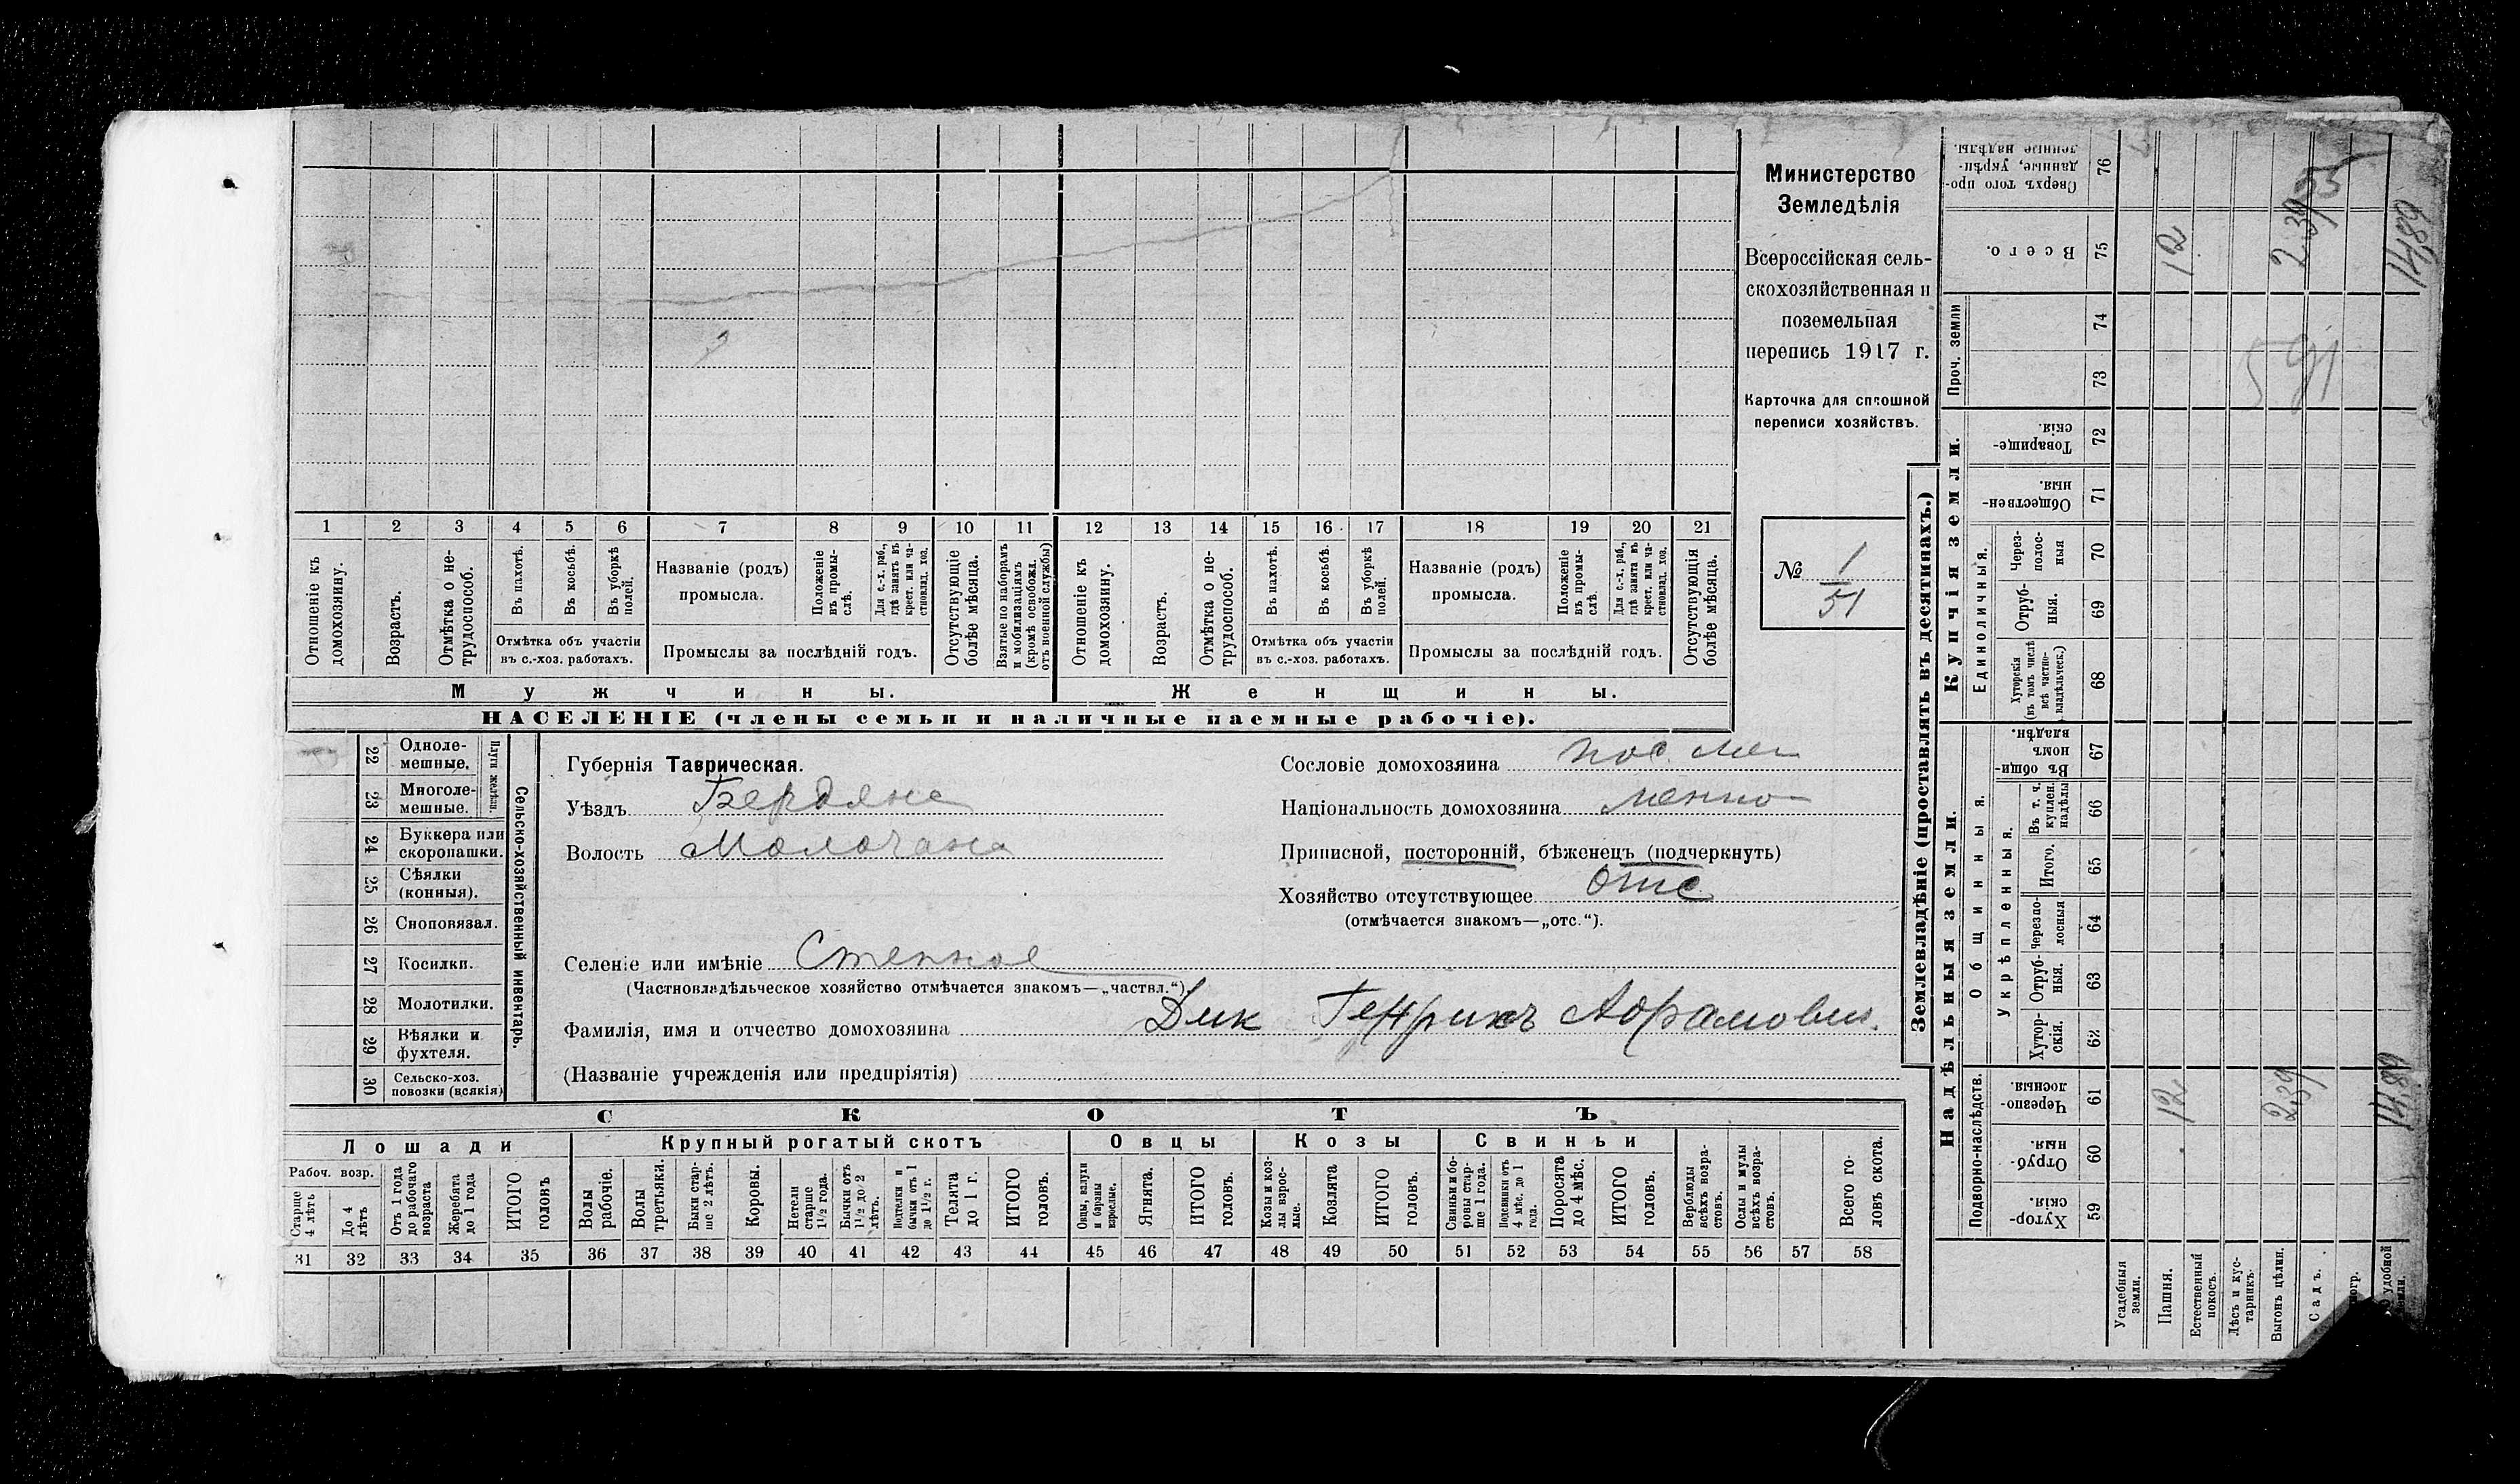 Министерство
Земледѣлія
Всероссійская сель-
скохозяйственная и
поземельная
перепись 1917 г.
Карточка для сплошной
переписи хозяйствъ.
№ 1
51
1 2 3 4 5 6 7 8 9 10 11 12 13 14 15 16 17 18 19 20 21
Отношеніе къ домохозяину.
Возрастъ.
Отмѣтка о не-трудоспособ.
Въ пахотѣ.
Въ косьбѣ.
Въ уборкѣ полей.
Отмѣтка объ участіи
въ с.-хоз. работахъ.
Названіе (родъ)
промысла.
Положеніе въ промы-слѣ.
Для с.-х. раб., гдѣ занятъ въ крест. или ча-стновлад. хоз.
Промыслы за послѣдній годъ.
Отсутствующіе болѣе мѣсяца.
Взятые по наборамъ и мобилизаціямъ (кромѣ освобожд. отъ военной службы)
Отношеніе къ домохозяину.
Возрастъ.
Отмѣтка о не-трудоспособ.
Въ пахотѣ.
Въ косьбѣ.
Въ уборкѣ полей.
Отмѣтка объ участіи
въ с.-хоз. работахъ.
Названіе (родъ)
промысла.
Положеніе въ промы-слѣ.
Для с.-х. раб., гдѣ занята въ крест. или ча-стновлад. хоз.
Промыслы за послѣдній годъ.
Отсутствующія болѣе мѣсяца.
Мужчины.
Женщины.
НАСЕЛЕНІЕ (члены семьи и наличные наемные рабочіе).
Сельско-хозяйственный инвентарь.
Плуги желѣзн.
22 Одноле-мешные.
23 Многоле-мешные.
24 Буккера или скоропашки.
25 Сѣялки (конныя).
26 Сноповязал.
27 Косилки.
28 Молотилки.
29 Вѣялки и фухтеля.
30 Сельско-хоз. повозки (всякія)
Губернія Таврическая.
Уѣздъ Бердянс
Волость Молочанс
Сословіе домохозяина пос. мен
Національность домохозяина менно
Приписной, посторонній, бѣженецъ (подчеркнуть)
Хозяйство отсутствующее отс
(отмѣчается знакомъ—„отс.“).
Селеніе или имѣніе Степное
(Частновладѣльческое хозяйство отмѣчается знакомъ—„частвл.“).
Фамилія, имя и отчество домохозяина Дик Генрихъ Абрамович.
(Названіе учрежденія или предпріятія)
СКОТЪ
Лошади
Крупный рогатый скотъ
Овцы
Козы
Свиньи
Рабоч. возр.
Старше 4 лѣтъ
До 4 лѣтъ
Отъ 1 года до рабочаго возраста
Жеребята до 1 года
ИТОГО головъ
Волы рабочіе.
Волы третьяки.
Быки стар-ше 2 лѣтъ.
Коровы.
Нетели старше 1½ года.
Бычки отъ 1½ до 2 лѣтъ.
Подтелки и бычки отъ 1 до 1½ г.
Телята до 1 г.
ИТОГО головъ.
Овцы, валухи и бараны взрослые.
Ягнята.
ИТОГО головъ.
Козы и коз-лы взрос-лые.
Козлята
ИТОГО головъ.
Свиньи и бо-ровы стар-ше 1 года.
Подсвинки отъ 4 мѣс. до 1 года.
Поросята до 4 мѣс.
ИТОГО головъ.
Верблюды всѣхъ возра-стовъ.
Ослы и мулы всѣхъ возра-стовъ.
Всего го-ловъ скота.
31 32 33 34 35 36 37 38 39 40 41 42 43 44 45 46 47 48 49 50 51 52 53 54 55 56 57 58
Землевладѣніе (проставлять въ десятинахъ.)
Надѣльныя земли.
Купчія земли.
Проч. земли
Подворно-наслѣдств.
Общинныя.
Укрѣпленныя.
Единоличныя.
Хутор-скія. 59
Отруб-ныя. 60
Черезпо-лосныя. 61
Хутор-скія. 62
Отруб-ныя. 63
Черезпо-лосныя 64
Итого. 65
Въ т. ч. куплен. надѣлы 66
Въ общи-номъ владѣн. 67
Хуторскія (въ томъ числѣ всѣ частно-владѣльческ.) 68
Отруб-ныя. 69
Через-полос-ныя 70
Обществен-ныя. 71
Товарище-скія. 72
73
74
Всего. 75
Сверхъ того про-данные, укрѣп-ленные надѣлы. 76
Усадебныя земли.
Пашня. 12 12
Естественный покосъ.
Лѣсъ и кус-тарникъ.
Выгонъ цѣлин. 239 239
Садъ.
удобной земли. 1489 1489
591